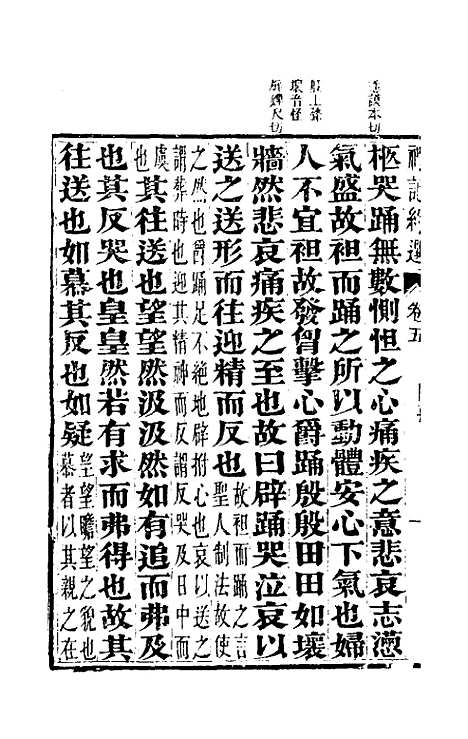 懣本切
殷上聲
壞音怪
辟婢尺切
卷五
柩哭踊無數惻怛之心痛疾之意悲哀志懣
氣盛故袒而踊之所以動體安心下氣也婦
人不宜袒故發胷擊心爵踊殷殷田田如壞
牆然悲哀痛疾之至也故曰辟踊哭泣哀以
送之送形而往迎精而反也故袒而踊之言
聖人制法故使
之然也爵踊足不絶地辟拊心也哀以送之
謂葬時也迎其精神而反謂反哭及日中而
虞也其往送也望望然汲汲然如有追而弗及
也其反哭也皇皇然若有求而弗得也故其
往送也如慕其反也如疑望望瞻望之貌也
慕者以其親之在